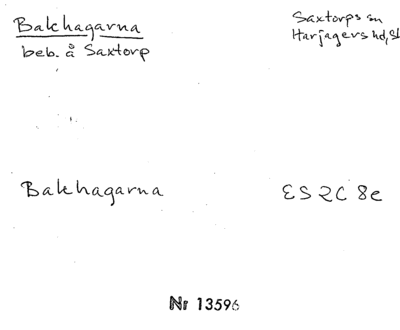 Bakhagarna
beb. å Saxtorp
Saxtorps sn
Harjagers hd, Sk
Bakhagarna
ES 2C 8e
Nr 13596